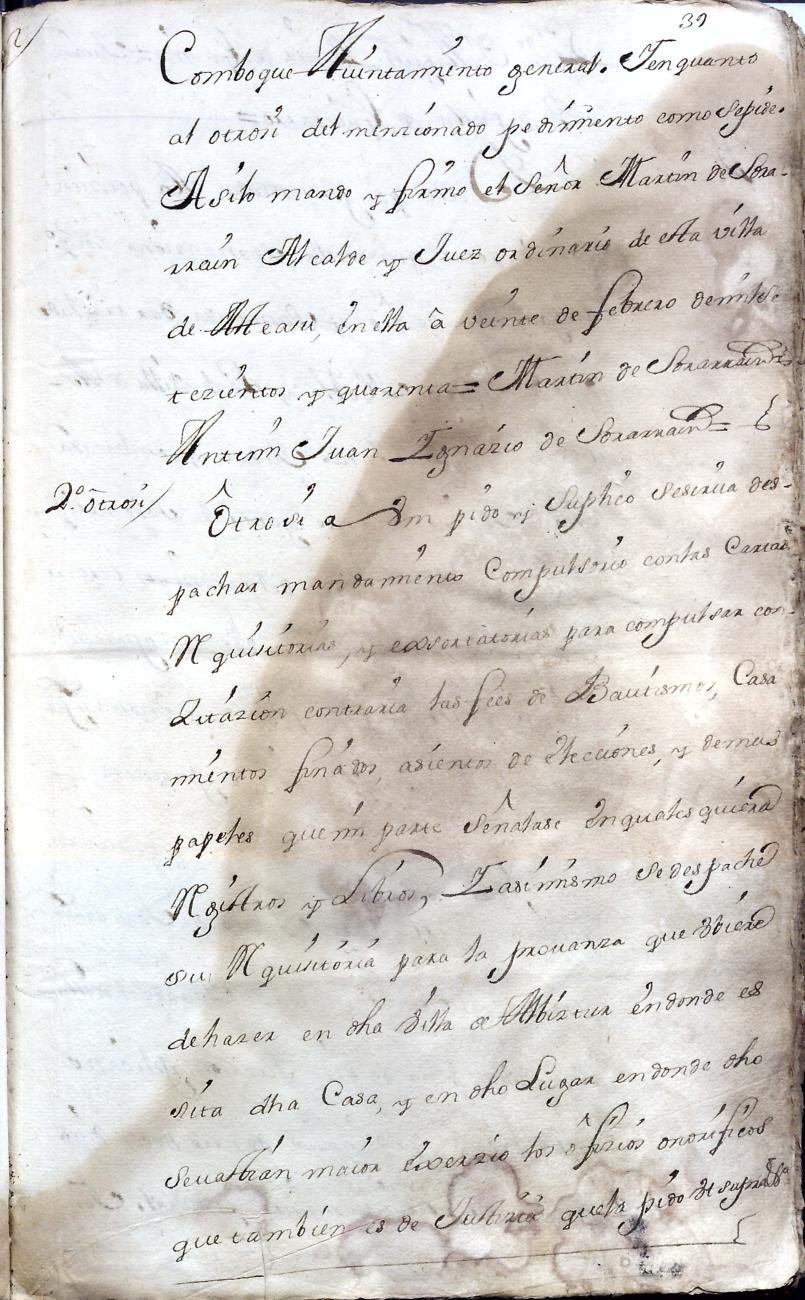 39
Comboque Aiuntamiento general. Ÿenquanto
al otrosi del menzionado pedimiento como sepide.
Asilo mando y firmo el Señor Martin de Sora-
rrain Alcalde y Juez ordinario de esta villa
de Asteasu, en ella â veinte de febrero demilse
tezientos y quarenta= Martin de Sorarrain=
Antemi Juan Ignazio de Sorarrain=
2.º otrosi
Otrosi a Vm pido y Suplico Sesirva des-
pachar mandamiento Compulsorio contas Cartas
Rquisitorias, y exsortatorias para compulsar con
Zitazion contraria las fees de Bautismos, Casa
mientos finados, asientos de Elecciones, y demas
papeles que mi parte Señalase en qualesquiera
Rgistros y Libros, Ÿ asimismo se despache
su Rquisitoria para la provanza que ubiere
dehazer en dha villa de Albiztur en donde es
sita dha Casa, y en dho Lugar en donde dho
Sevastian maior exerzio los ofizios onorificos
que tambien es de Justizia que la pido Vt supra